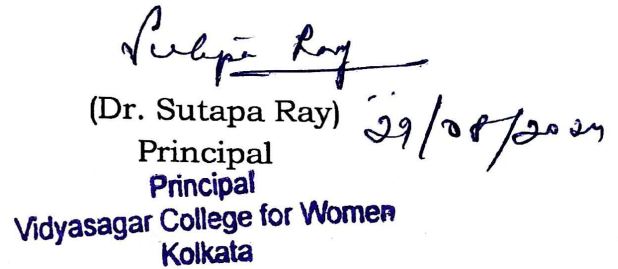 Sutapa Ray
(Dr. Sutapa Ray)
29/08/2024
Principal
Principal
Vidyasagar College for Women
Kolkata